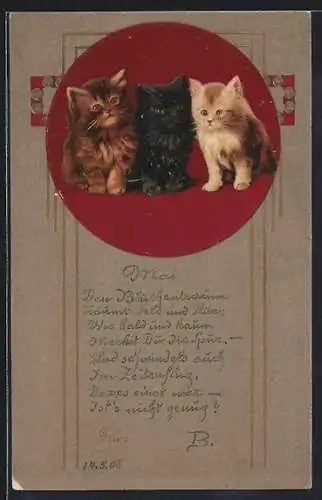 Mai
Den Blüthentraum
träumt Feld und Flur;
Wie bald und kaum
Merkst Du die Spur. —
Und schwindels auch
Im Zeitenflug,
Dasses einst war —
Ist's nicht genug?
B.
14.5.06